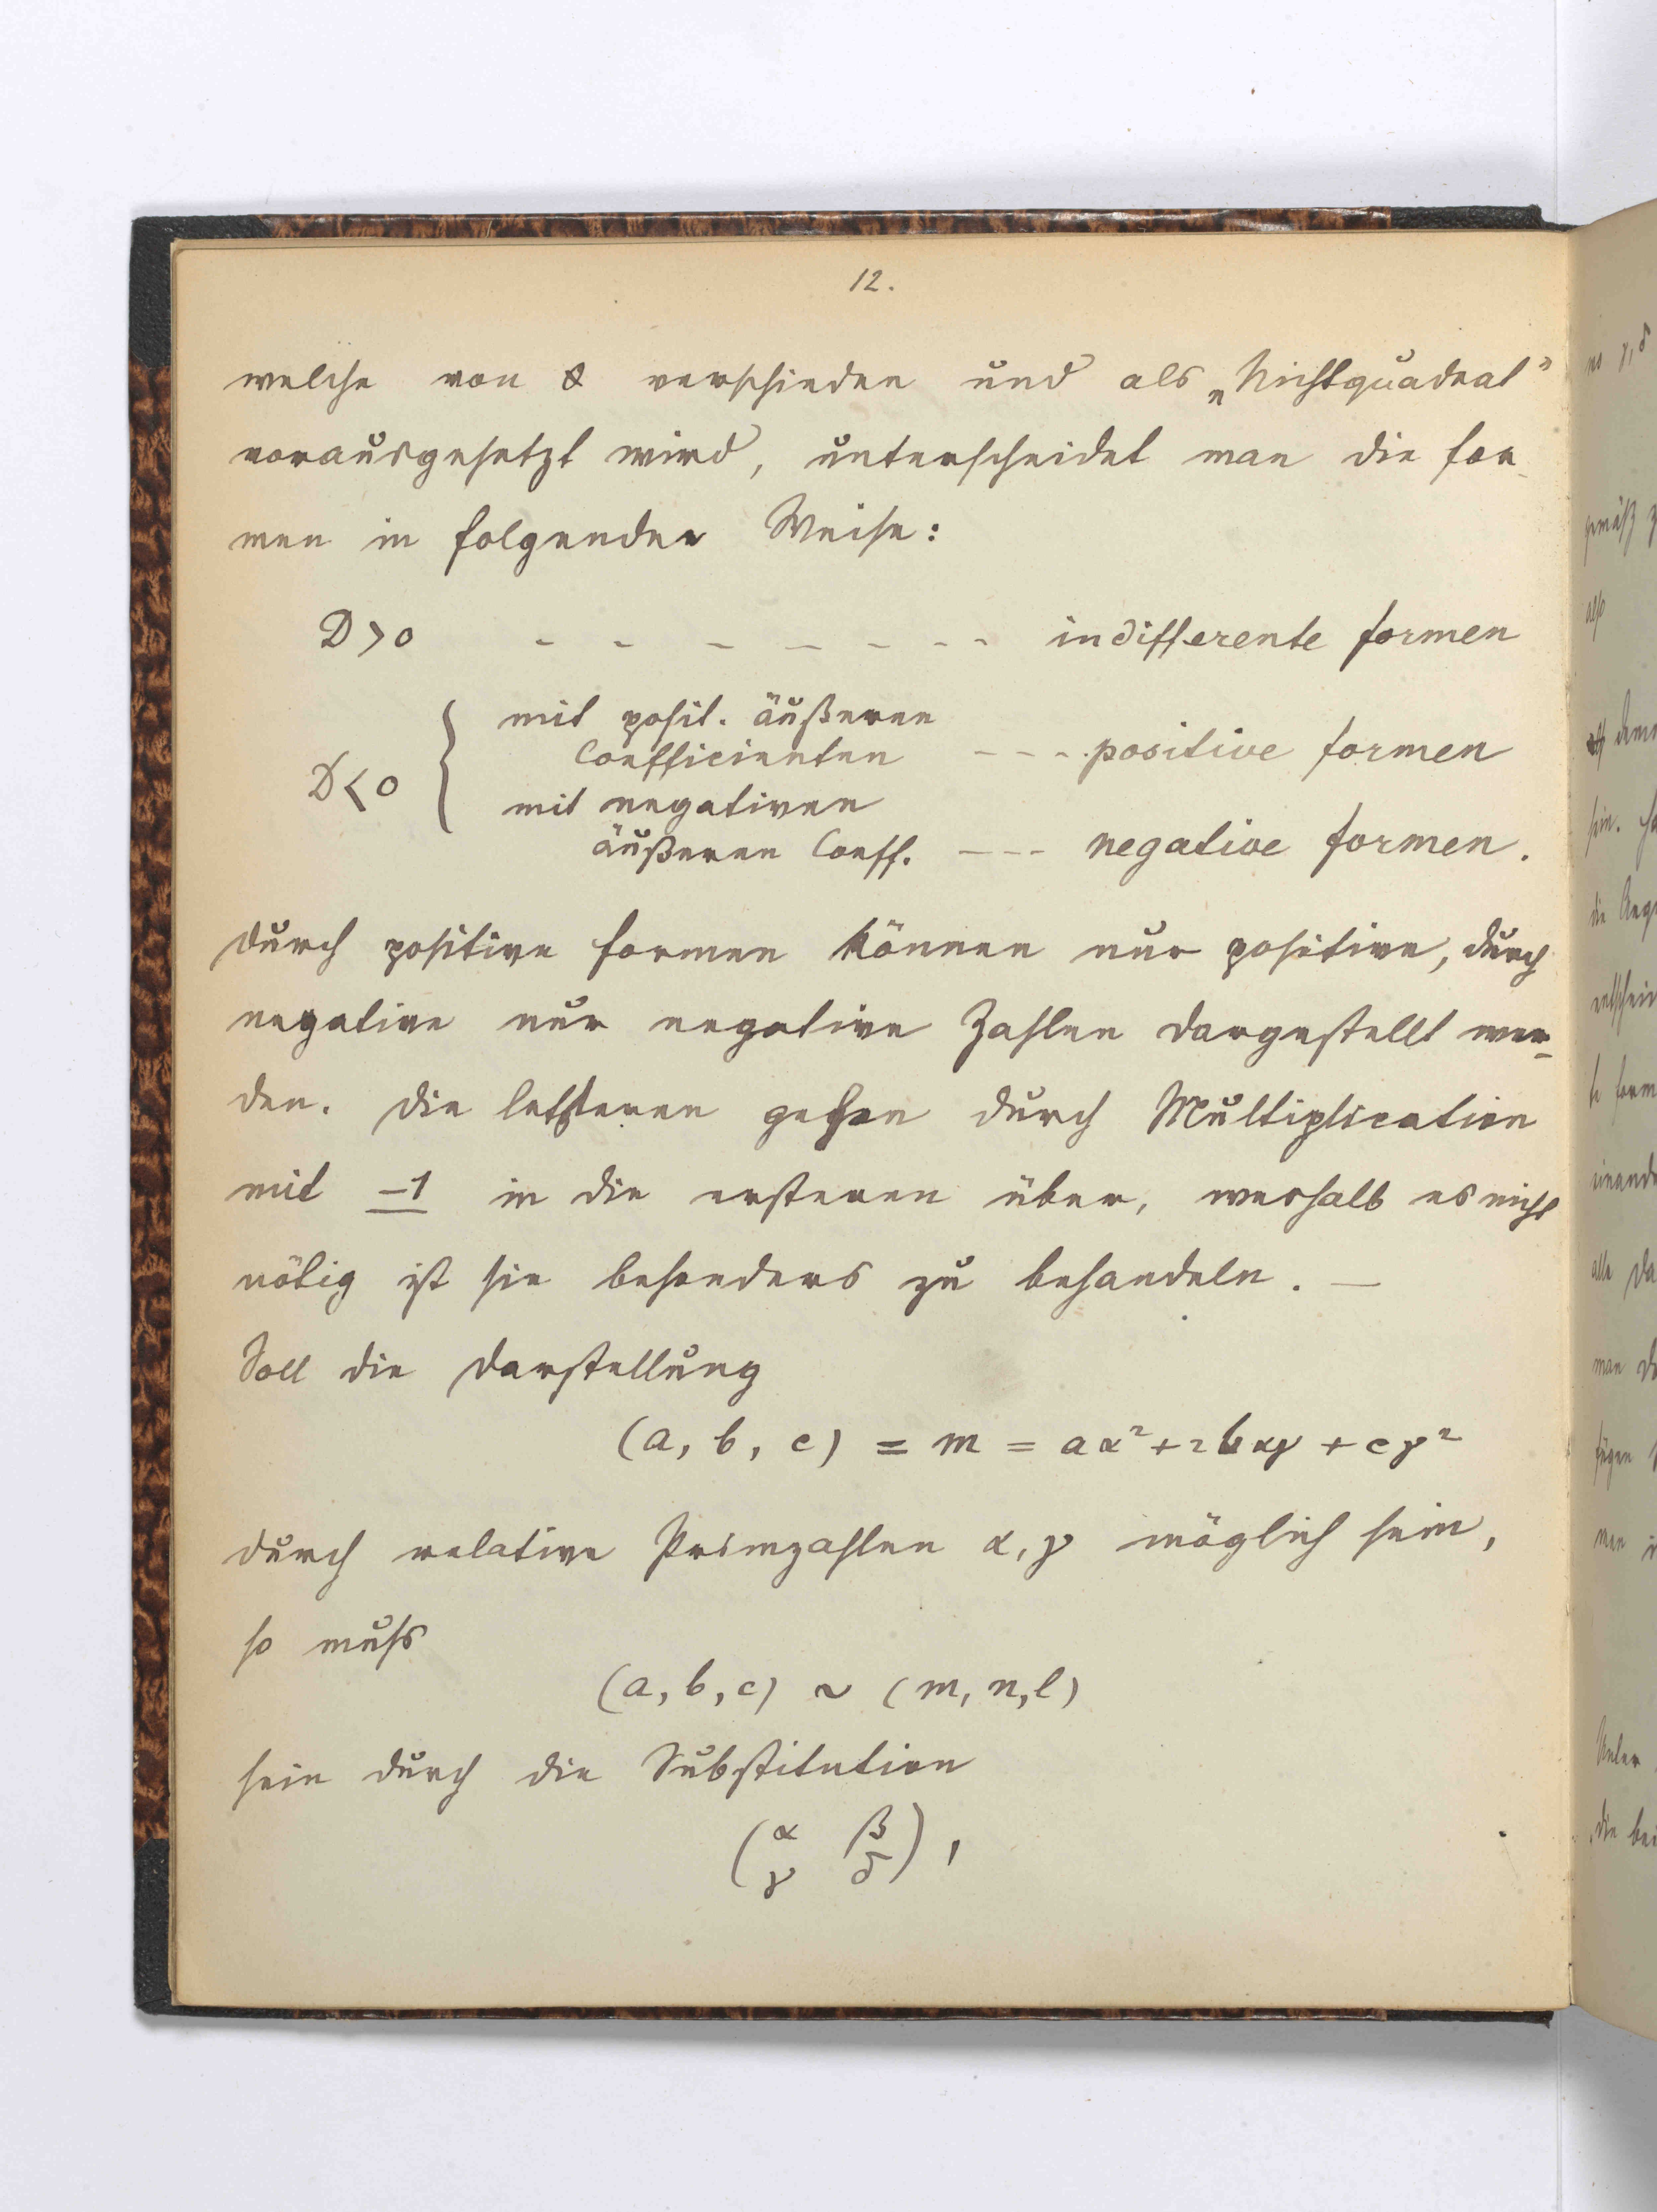 12.
welche von 0 verschieden und als „Nichtquadrat"
vorausgesetzt wird, unterscheidet man die For-
men in folgender Weise:
D>0 - - - - - - - indifferente Formen
mit posit. äußeren
Coefficienten - - - positive Formen
D<0 {
mit negativen
äußeren Coeff. - - - negative Formen.
Durch positive Formen können nur positive, durch
negative nur negative Zahlen dargestellt wer-
den. Die letzteren gehen durch Multiplication
mit –1 in die ersteren über, weshalb es nicht
nötig ist sie besonders zu behandeln. —
Soll die Darstellung
(a, b, c) = m = aα² + 2bαγ + cγ²
durch relative Primzahlen α, γ möglich sein,
so muß
(a, b, c) ~ (m, n, l)
sein durch die Substitution
(α β
γ δ),